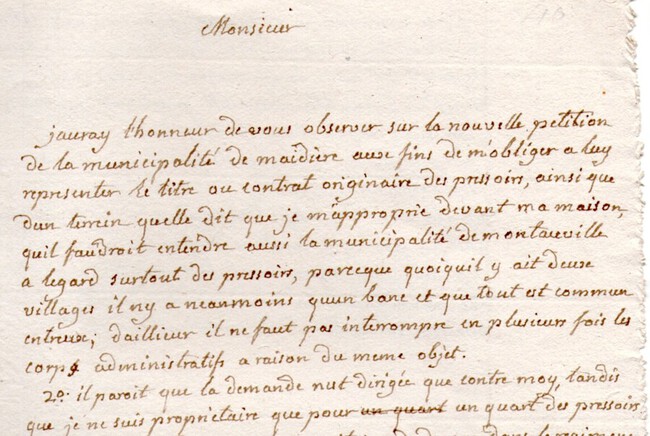 Monsieur
jauray lhonneur de vous observer sur la nouvelle petition
de la municipalité de maidiere aux fins de m'obliger a luy
representer le titre ou contrat originaire des pressoirs, ainsi que
dun terrein quelle dit que je m'approprie devant ma maison,
quil faudroit entendre aussi la municipalité de montauville
a legard surtout des pressoirs, parceque quoiquil y ait deux
villages il ny a neanmoins quun banc et que tout est commun
entreux; dailleur il ne faut pas interrompre en plusieurs fois les
corps administratifs a raison du meme objet.
2o: il paroit que la demande nut dirigée que contre moy, tandis
que je ne suis proprietaire que pour un quart un quart des pressoirs